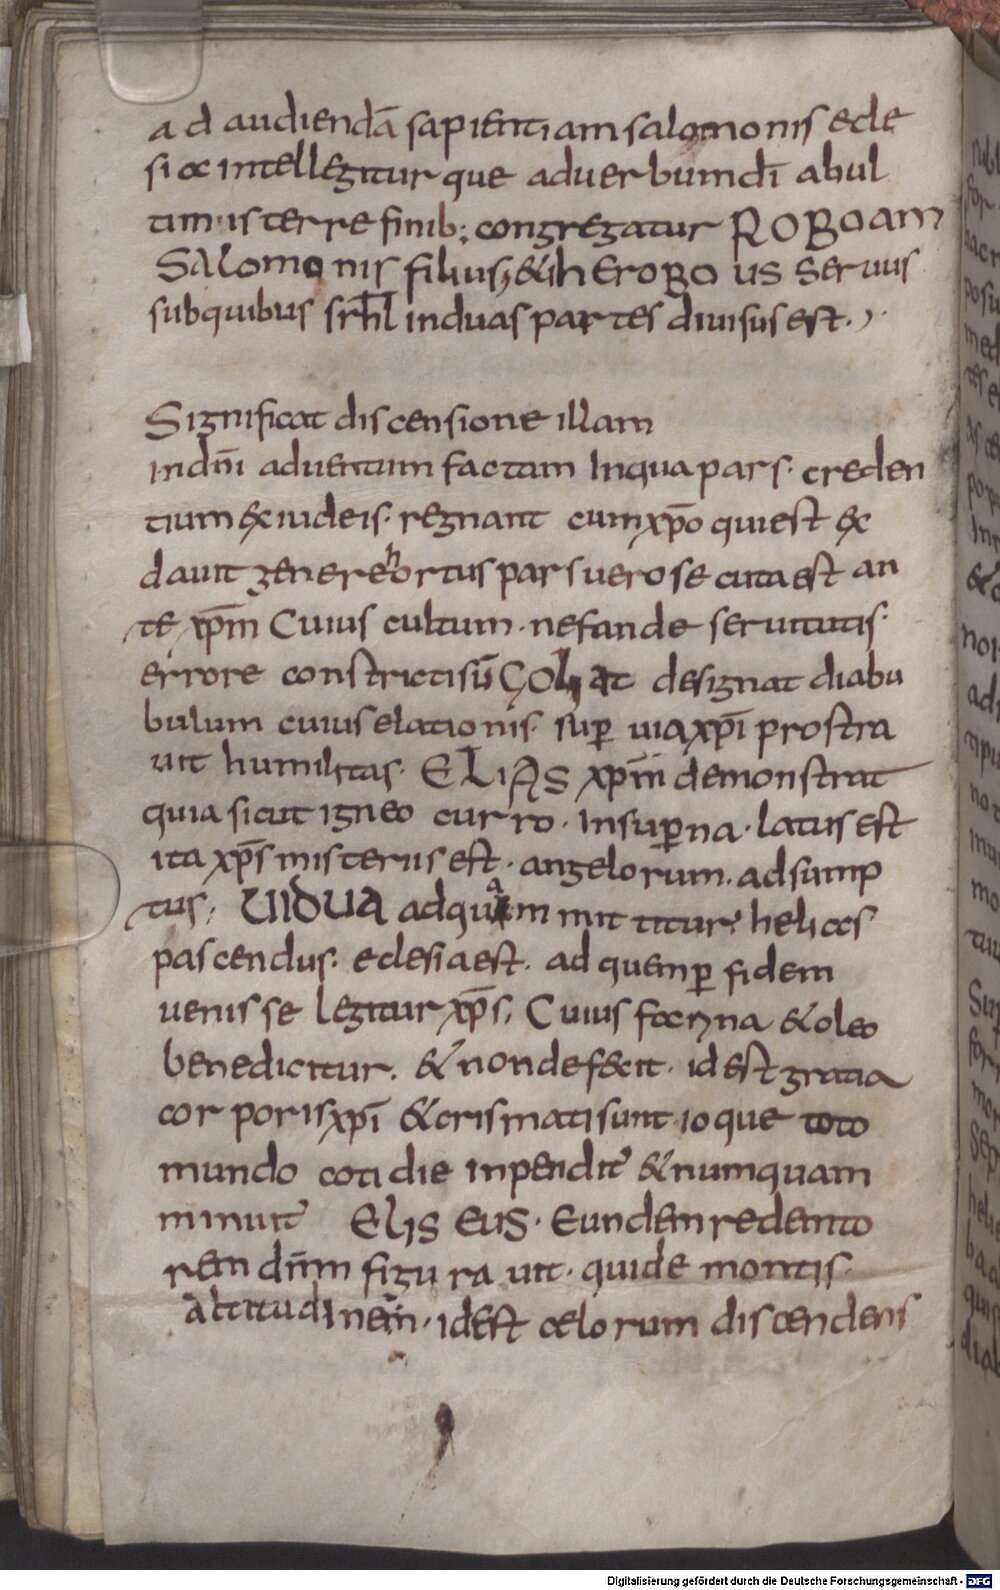 ad audiendā sapientiam salomonis ecle
sia intellegitur que ad uerbum dī ab ul
timis terre finib; congregatur ROBOAM
Salomonis filius, & ihEROBO us seruus
sub quibus srħl in duas partes diuisus est.
Significat discensione illam
In dn̄i aduentum factam In qua pars. creden
tium ex iudeis. regnant cum xp̄o qui est ex
dauit genere hortus pars uero secuta est an
te xp̄m Cuius cultum. nefande seruitutis.
errore constricti sū̄ Goliat designat diabu
bulum cuius elationis. sup̱ uia xp̄i prostra
uit humilitas. ELIAS xp̄m demonstrat
quia sicut igneo curro. In sup̱na. latus est
ita xp̄s misteriis est. angelorum. adsump
tus; UIDUA ad quam mittitur helias
pascendus. eclesia est. ad quem p̱ fidem
uenisse legitur xp̄s, Cuius farina & oleo
benedicitur. & non defecit. id est gratia
corporis xp̄i & crismatis unt io que toto
mundo cotidie inpendit & numquam
minuit Eliseus. Eunden redemto
rem dn̄m figurauit. qui de montis.
altitudinem. id est celorum discendens
Digitalisierung gefördert durch die Deutsche Forschungsgemeinschaft - DFG